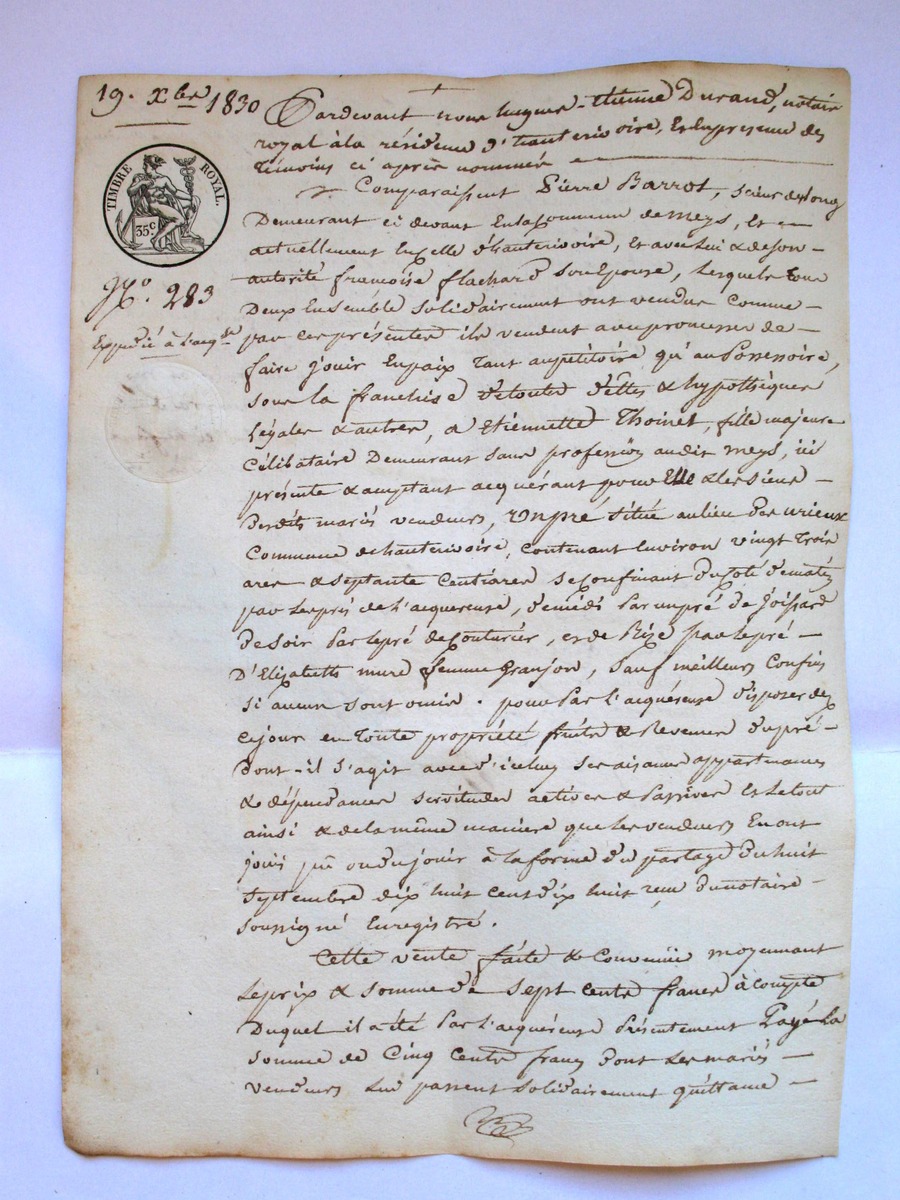 19. Xbre 1830
TIMBRE ROYAL.
35c
N°. 283
Expedié à l'acqr
Pardevant nous hugues-Etienne Durand, notaire
royal à la résidence d'hauterivoire, En la presence des
témoins ci après nommés
Comparaissent Pierre Barrot, scieur de long
Demeurant ci devant En la Commune de meys, Et
actuellement En Celle d'hauterivoire, Et avec Lui & de son
autorité françoise flachard son Epouse, Lesquels tous
Deux Ensemble solidairement ont vendus comme
par ces présentes ils vendent avec promesse de
faire jouir En paix tant au petitoire qu'au Possessoire,
sous la franchise de toutes dettes & hypothèques
Légales & autres, à Etiennette Thoinet, fille majeure
Célibataire Demeurant sans profession audit meys, ici
présente & acceptant acquérant pour Elle & les siens
Desdits mariés vendeurs, Un pré situé au lieu des
Commune d'hauterivoire, contenant Environ vingt trois
ares & septante Centiares se Confinant du Coté de matin
par les prés de L'acquereuse, de midi Par un pré de
de soir Par le pré de Couturier, et de Bize par le pré
D'Elizabeth mure femme Granjon, sauf meilleurs Confins
si aucuns sont omis. pour Par L'acquéreuse disposer dez
ce jour en toute propriété fruits & Revenus du pré
dont-il s'agit avec d'icelui ses aisances appartenances
& dépendances servitudes actives & Passives Et le tout
ainsi & de la même manière que les vendeurs En ont
joui pû ou du jouir à la forme du partage du huit
septembre dix huit cent dix huit reçu du notaire
soussigné Enregistré.
Cette vente faite & Convenüe moyennant
Le prix & somme de sept cents francs à compte
Duquel il a été Par L'acquéreuse Présentement Payé La
somme de Cinq Cents francs dont Les mariés
vendeurs Lui passent solidairement quittance